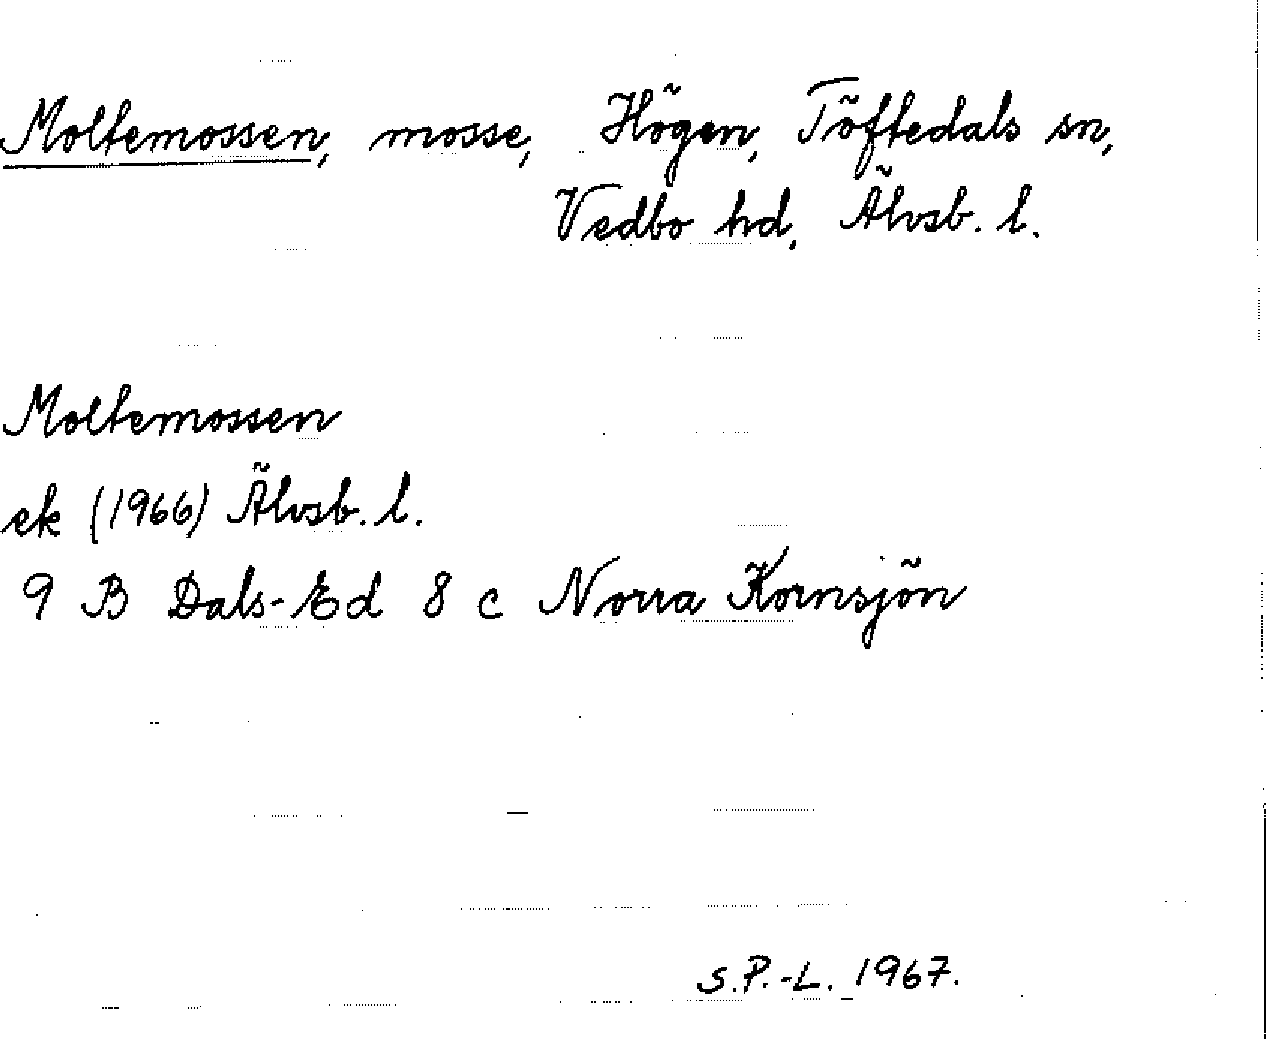 Moltemossen, mosse, Högen, Töftedals sn,
Vedbo hd, Älvsb. l.
Moltemossen
ek (1966) Älvsb. l.
9 B Dals-Ed 8 c Norra Kornsjön
S.P.-L. 1967.